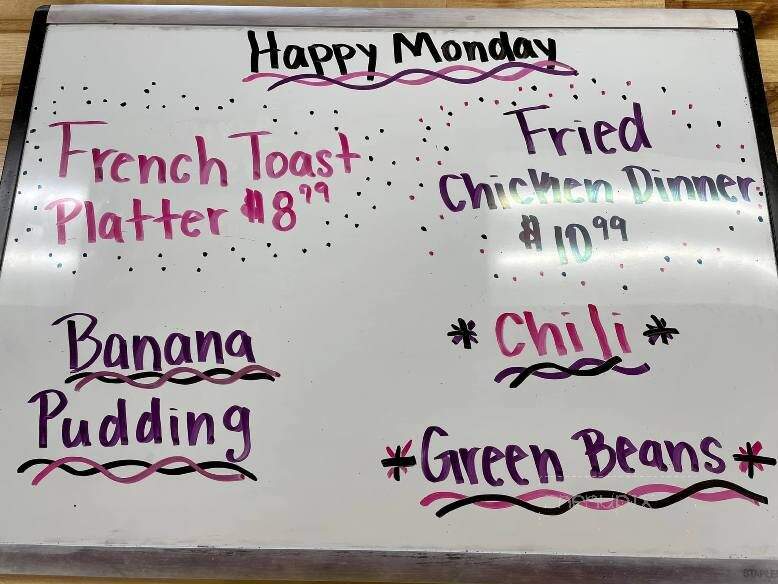 Happy Monday
French Toast
Platter $8.99
Fried
Chicken Dinner
$10.99
Banana
Pudding
* Chili *
* Green Beans *
menupix
STAPLES